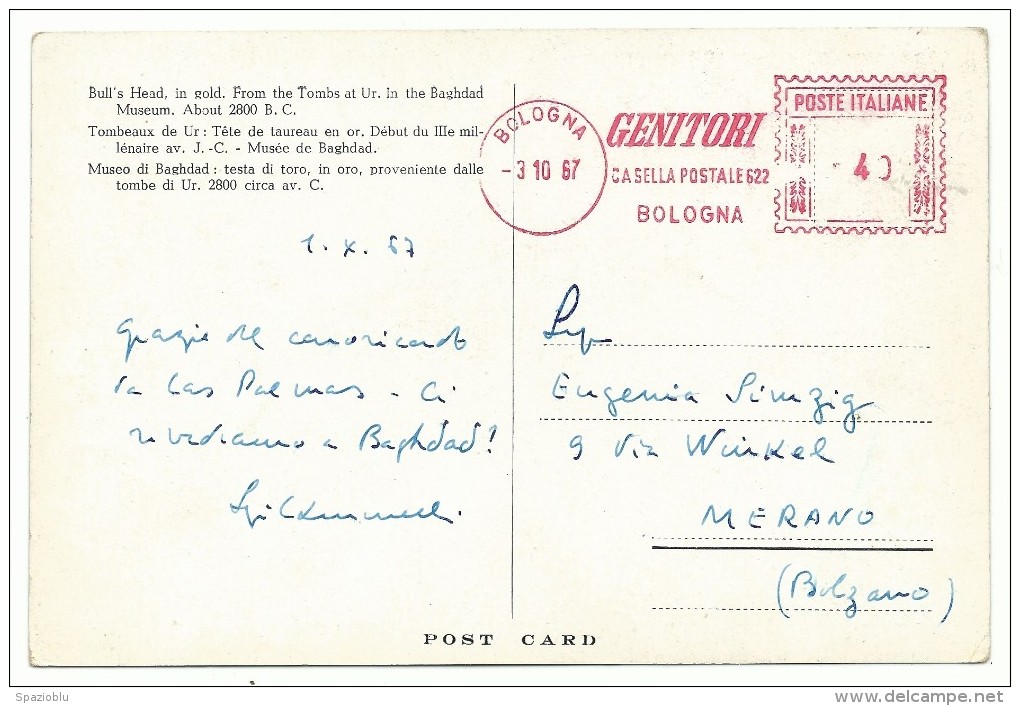 Bull's Head, in gold. From the Tombs at Ur. In the Baghdad
Museum. About 2800 B. C.
Tombeaux de Ur : Tête de taureau en or. Début du IIIe mil-
lénaire av. J.-C. - Musée de Baghdad.
Museo di Baghdad : testa di toro, in oro, proveniente dalle
tombe di Ur. 2800 circa av. C.
BOLOGNA
- 3 10 67
GENITORI
CASELLA POSTALE 622
BOLOGNA
POSTE ITALIANE
40
1. X. 67
Grazie del
da Las Palmas - Ci
rivediamo a Baghdad!
Eugenia Simzig
9 Via Winkel
MERANO
(Bolzano)
POST CARD
Spazioblu
www.delcampe.net